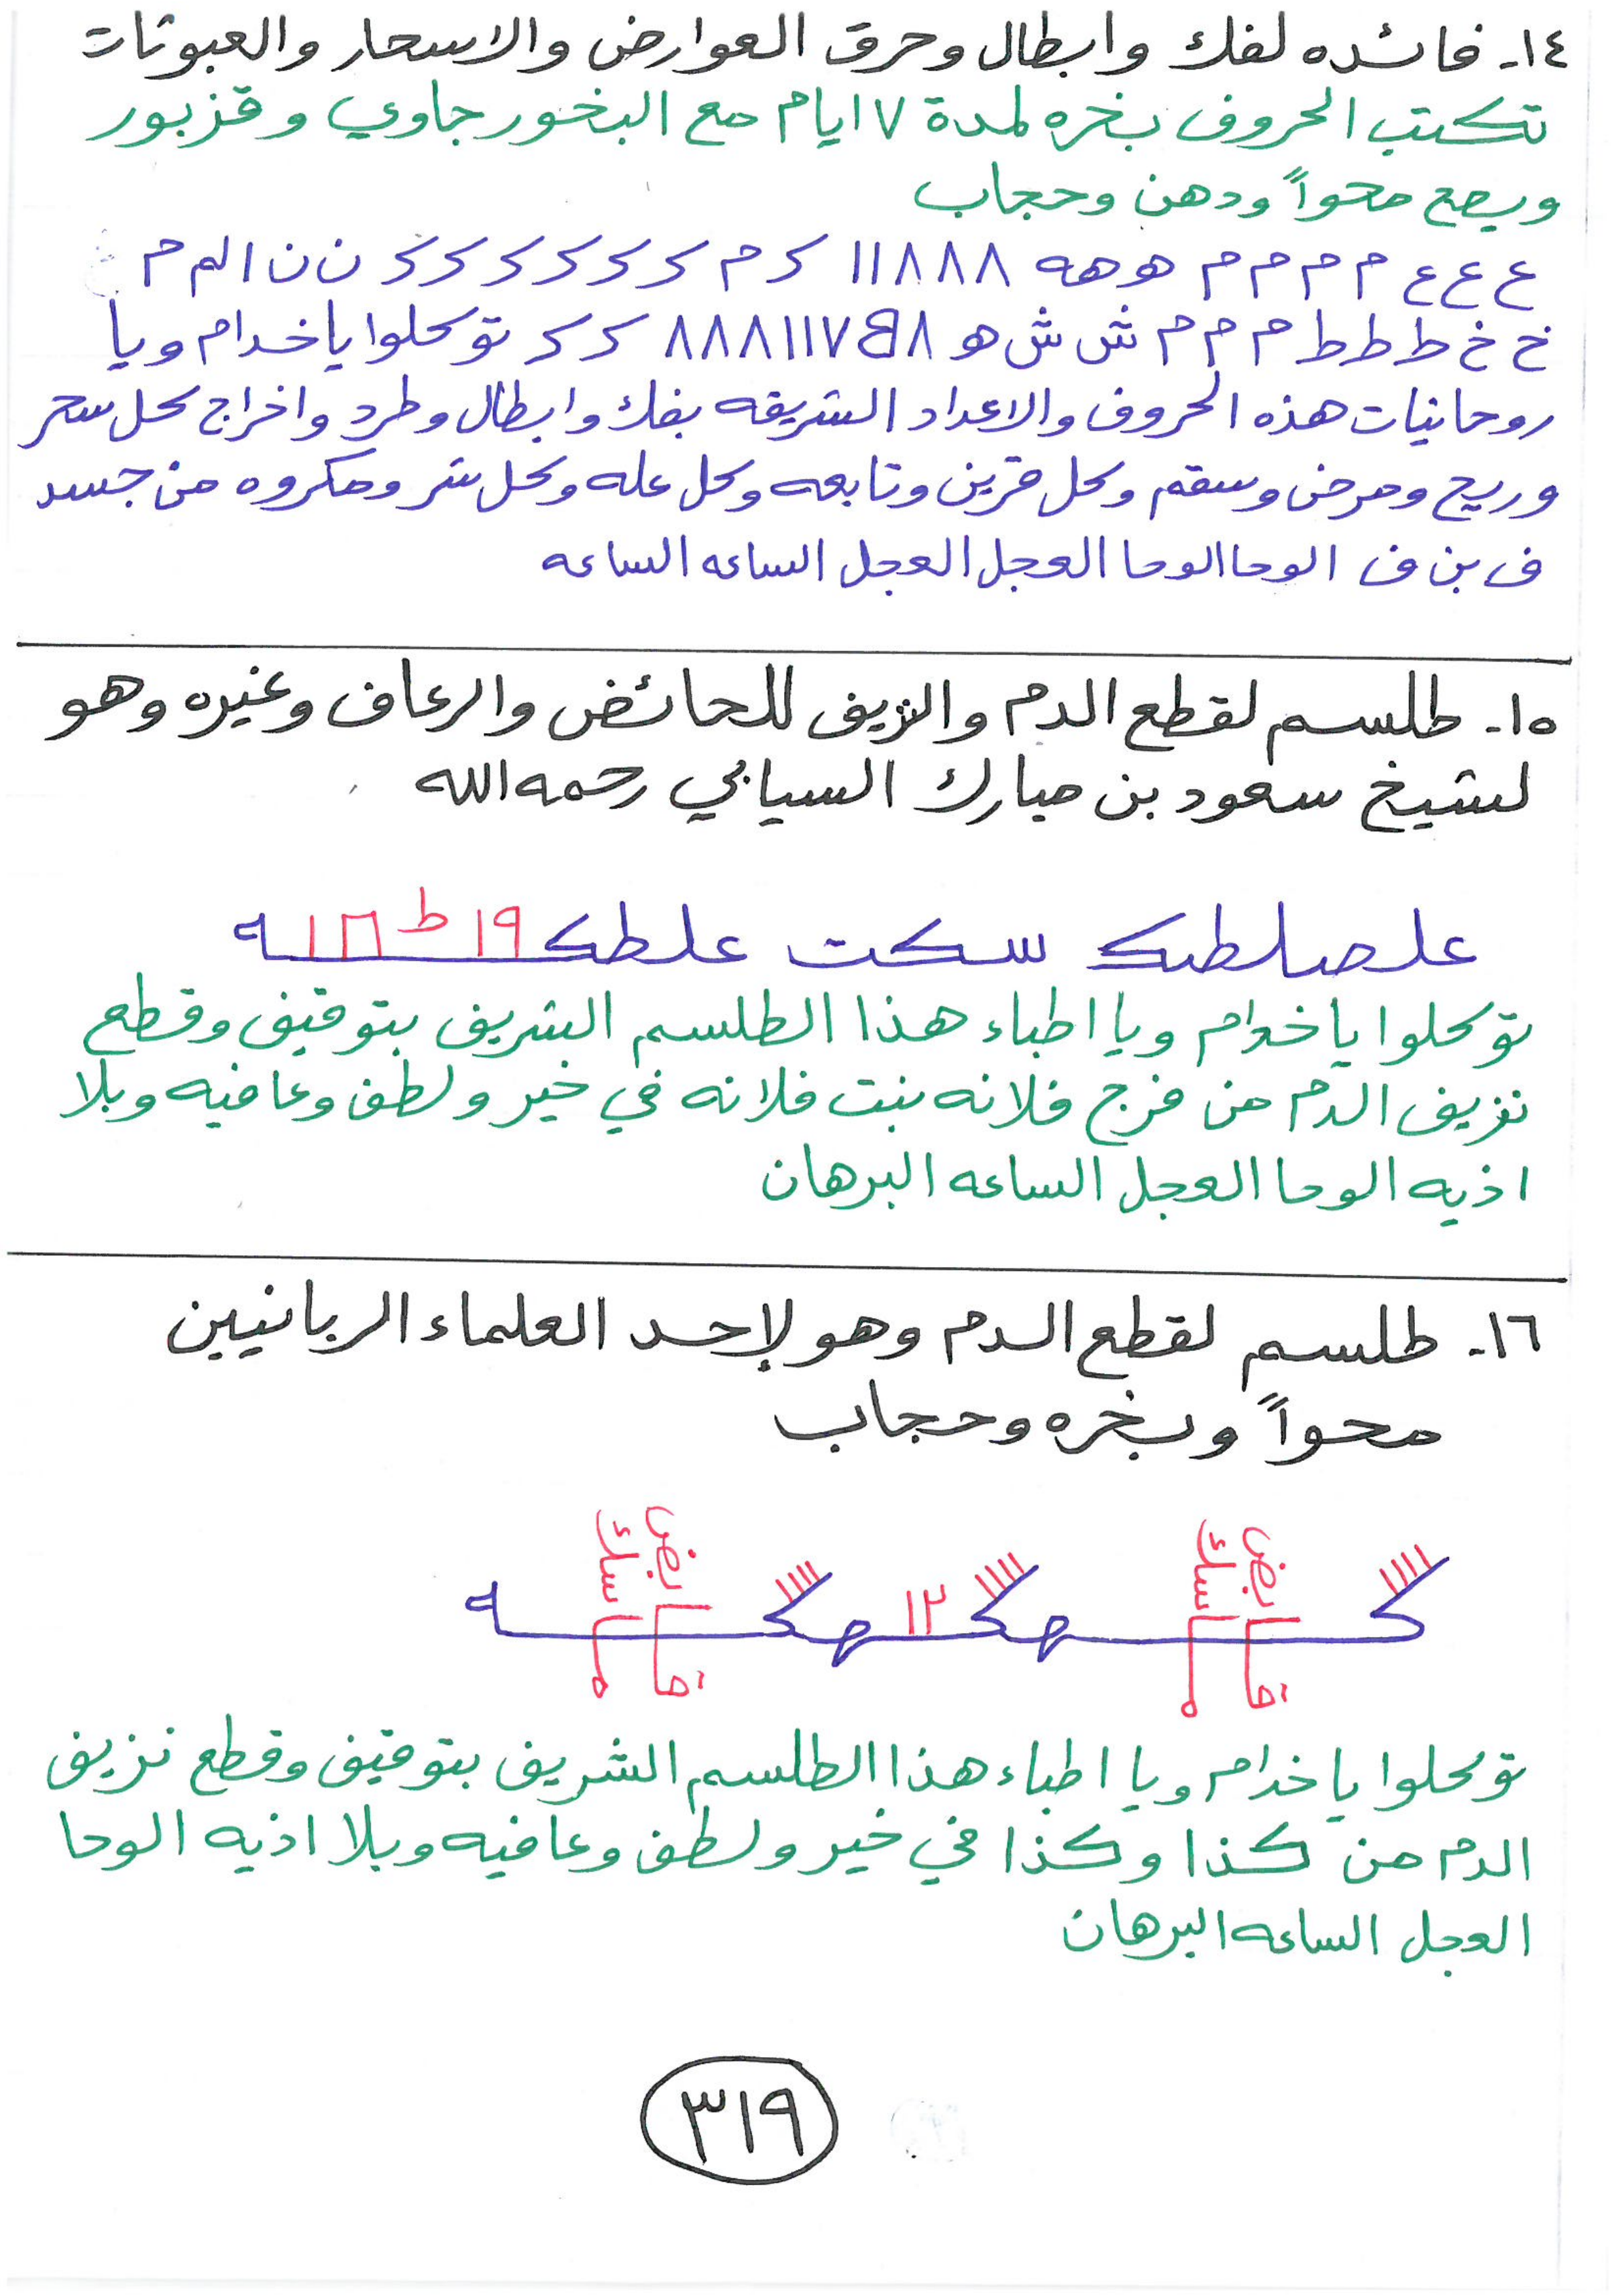 ١٤- فائده لفك وابطال وحرق العوارض والاسحار والعبوثات
تكتب الحروف بخره لمدة ٧ ايام مع البخور جاوي وقزبور
ويصح محواً ودهن وحجاب
ع ع ع م م م م هو هه ٨٨٨١١ ك م ك ك ك ك ك ك ك ن ن الم م
خ خ ط ط ط م م م ش ش هـ ٨ ٧١١٨٨٨ ك ك توكلوا يا خدام ويا
روحانيات هذه الحروف والاعداد الشريفه بفك وابطال وطرد واخراج كل سحر
وريح ومرض وسقم وكل قرين وتابعه وكل عله وكل شر ومكروه من جسد
ف بن ف الوحا الوحا العجل العجل الساعه الساعه
١٥- طلسم لقطع الدم والنزيف للحائض والرعاف وغيره وهو
لشيخ سعود بن مبارك السيابي رحمه الله
علصلطك سكت علطك ١٩ ط
توكلوا يا خدام ويا اطباء هذا الطلسم الشريف بتوقيف وقطع
نزيف الدم من فرج فلانه بنت فلانه في خير ولطف وعافيه وبلا
اذيه الوحا العجل الساعه البرهان
١٦- طلسم لقطع الدم وهو لإحد العلماء الربانيين
محواً وبخره وحجاب
١٢
توكلوا يا خدام ويا اطباء هذا الطلسم الشريف بتوقيف وقطع نزيف
الدم من كذا وكذا في خير ولطف وعافيه وبلا اذيه الوحا
العجل الساعه البرهان
٣١٩